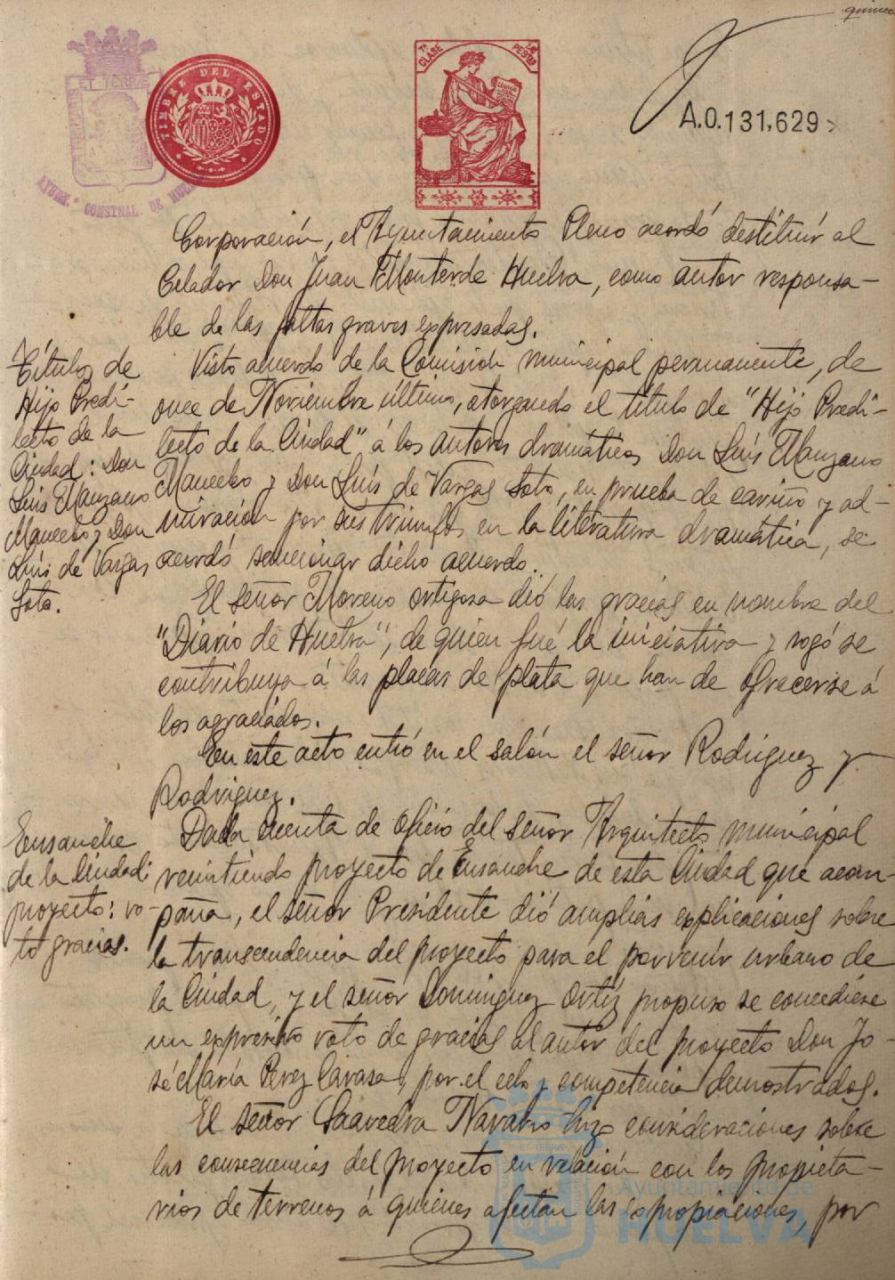 quince
TIMBRE DEL ESTADO
7ª CLASE
PESETAS
A.0.131,629
AYUNT.º CONSTNAL. DE HUELVA
Corporación, el Ayuntamiento Pleno acordó destituir al
Celador Don Juan Monterde Huelva, como autor responsa-
ble de las faltas graves expresadas.
Títulos de
Hijo Predi-
lecto de la
Ciudad: Don
Luis Manzano
Mancebo y Don
Luis de Vargas
Soto.
Visto acuerdo de la Comisión municipal permanente, de
once de Noviembre último, otorgando el título de "Hijo Predi-
lecto de la Ciudad" á los autores dramáticos Don Luís Manzano
Mancebo y Don Luís de Vargas Soto, en prueba de cariño y ad-
miración por sus triunfos en la literatura dramática, se
acordó sancionar dicho acuerdo.
El señor Moreno Ortigosa dió las gracias en nombre del
"Diario de Huelva", de quien fué la iniciativa y rogó se
contribuya á las placas de plata que han de ofrecerse á
los agraciados.
En este acto entró en el salón el señor Rodríguez y
Rodríguez.
Ensanche
de la Ciudad:
proyecto: vo-
to gracias.
Dada cuenta de oficio del señor Arquitecto municipal
remitiendo proyecto de Ensanche de esta Ciudad que acom-
paña, el señor Presidente dió amplias explicaciones sobre
la transcendencia del proyecto para el porvenir urbano de
la Ciudad, y el señor Domínguez Ortíz propuso se concediese
un expresivo voto de gracias al autor del proyecto Don Jo-
sé María Perez Carasa, por el celo y competencia demostrados.
El señor Saavedra Navarro hizo consideraciones sobre
las consecuencias del proyecto en relación con los propieta-
rios de terrenos á quienes afectan las expropiaciones, por
Ayuntamiento de
HUELVA